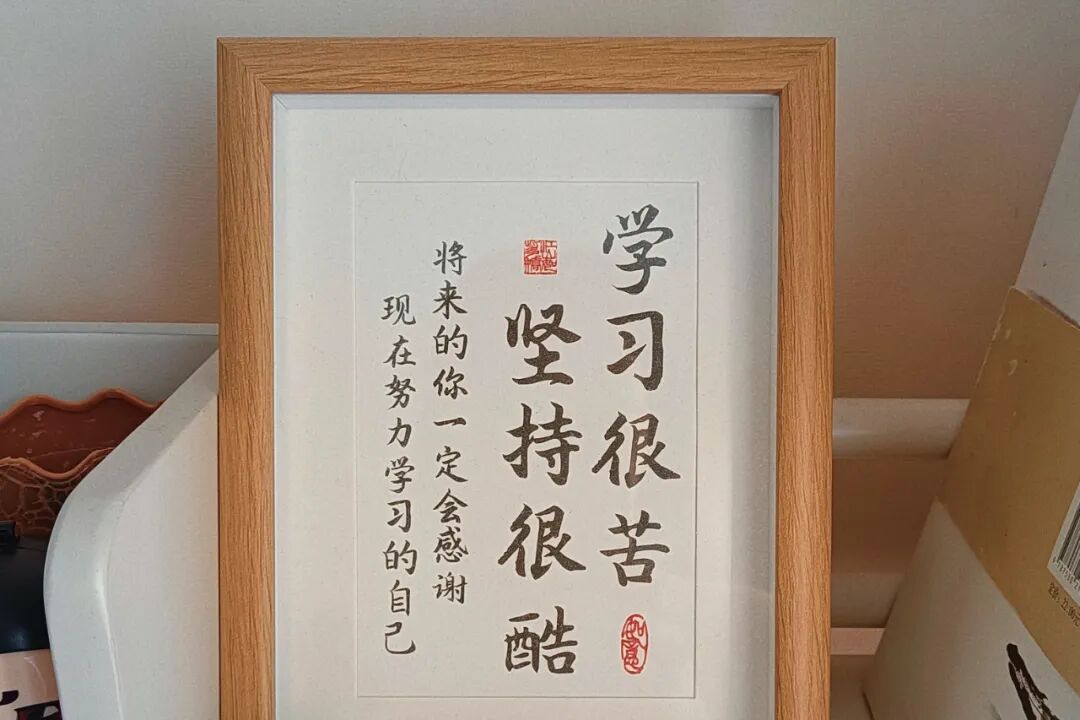 学习很苦
坚持很酷
将来的你一定会感谢
现在努力学习的自己
如意